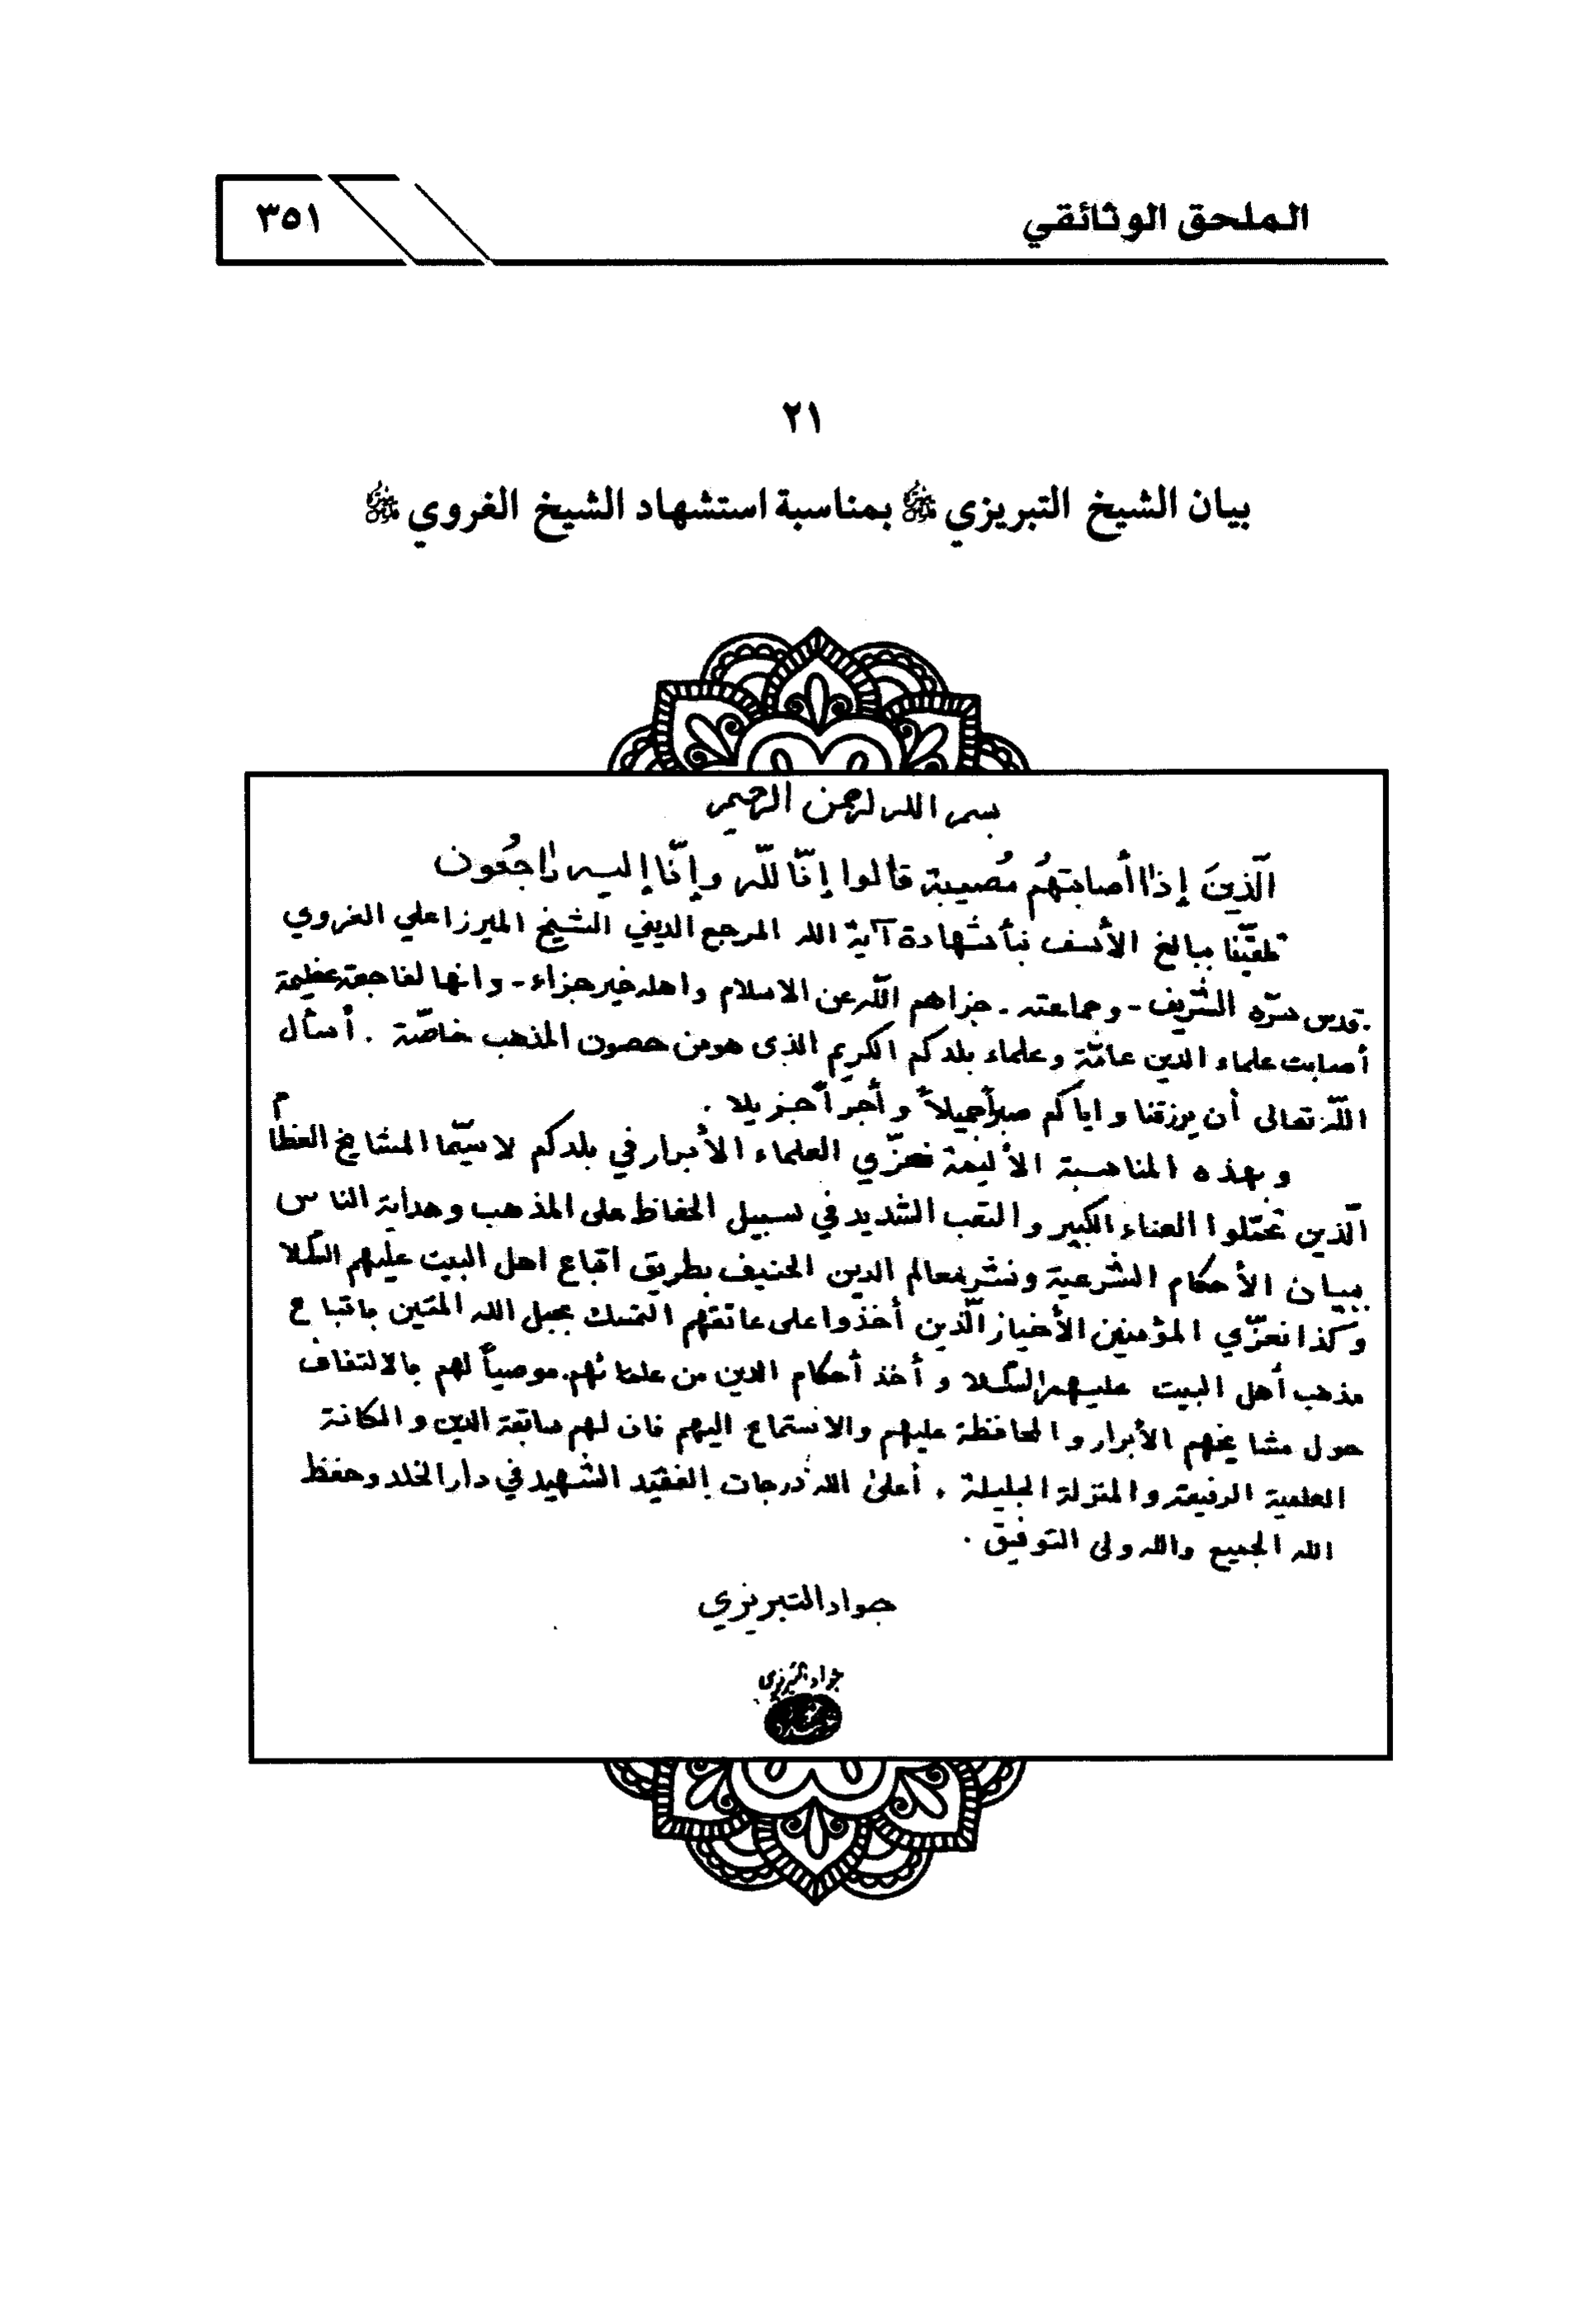 الملحق الوثائقي
٣٥١
٢١
بيان الشيخ التبريزي قدس سره بمناسبة استشهاد الشيخ الغروي قدس سره
بسم الله الرحمن الرحيم
الَّذينَ إذا أصابتهُم مُصيبة قالوا إنّا للّه وإنّا إليه راجعُون
تلقّينا ببالغ الأسف نبأ شهادة آية الله المرجع الديني الشيخ الميرزا علي الغروي
قدس سرّه الشريف - وجماعته - جزاهم اللّه عن الاسلام واهله خير جزاء - وانها لفاجعة عظيمة
أصابت علماء الدين عامّة وعلماء بلدكم الكريم الذى هو من حصون المذهب خاصّة . أسأل
اللّه تعالى أن يرزقنا واياكم صبراً جميلاً وأجراً جزيلا .
وبهذه المناسبة الأليمة نعزّي العلماء الأبرار في بلدكم لا سيّما المشايخ العظام
الّذين تحمّلوا العناء الكبير والتعب الشديد في سبيل الحفاظ على المذهب وهداية الناس
ببيان الأحكام الشرعية ونشر معالم الدين الحنيف بطريق اتباع اهل البيت عليهم السّلا
وكذا نعزّي المؤمنين الأخيار الّذين أخذوا على عاتقهم التمسك بحبل الله المتين باتباع
مذهب أهل البيت عليهم السّلا وأخذ أحكام الدين من علمائهم. موصياً لهم بالالتفاف
حول مشايخهم الأبرار والمحافظة عليهم والاستماع اليهم فان لهم سابقة الدين والمكانة
العلمية الرفيعة والمنزلة الجليلة . أعلىٰ الله درجات الفقيد الشهيد في دار الخلد وحفظ
الله الجميع والله ولى التوفيق .
جواد التبريزي
جواد التبريزي